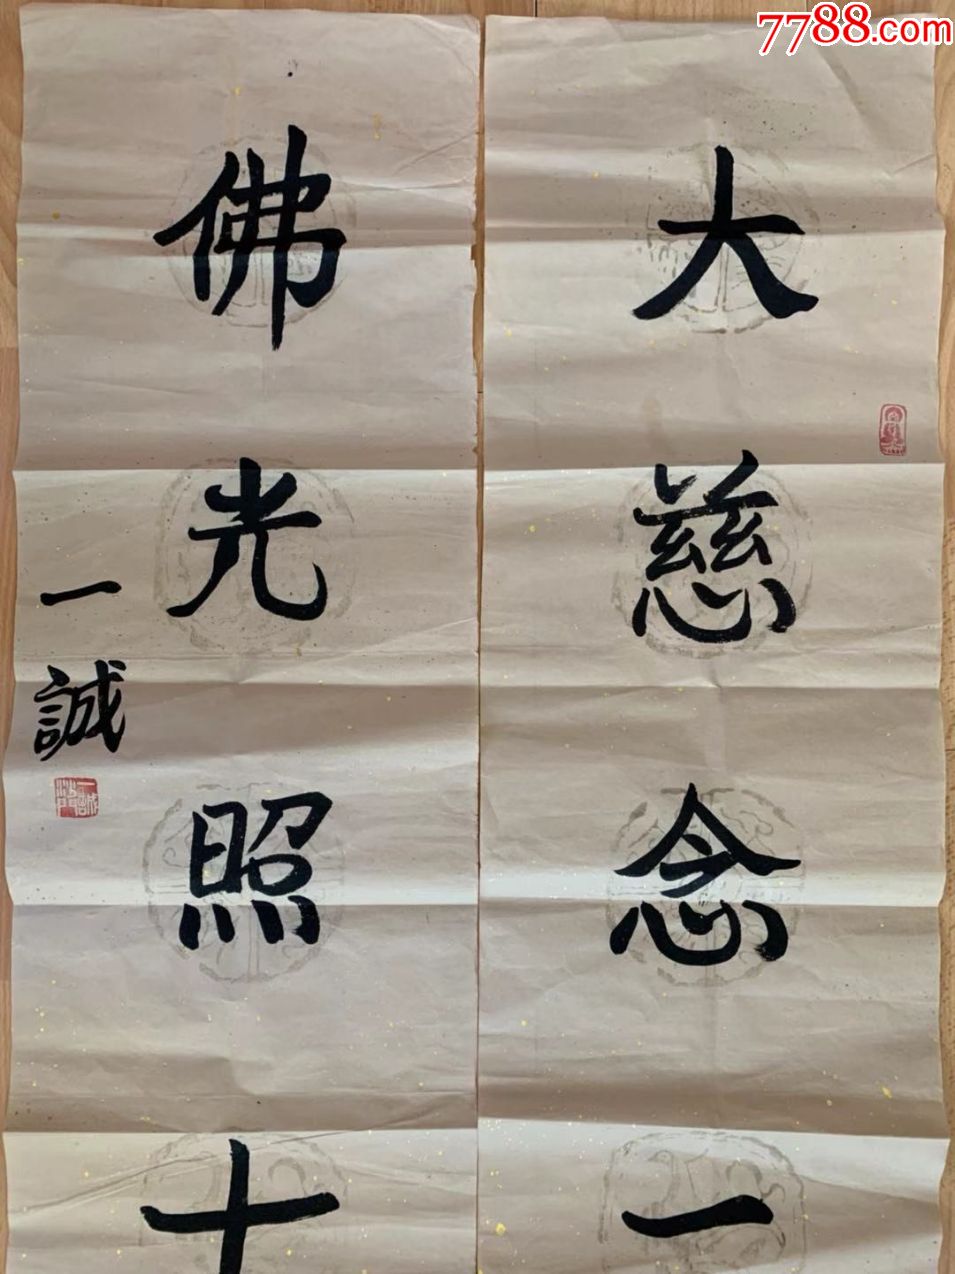 7788.com
大慈念一
佛光照十
一誠